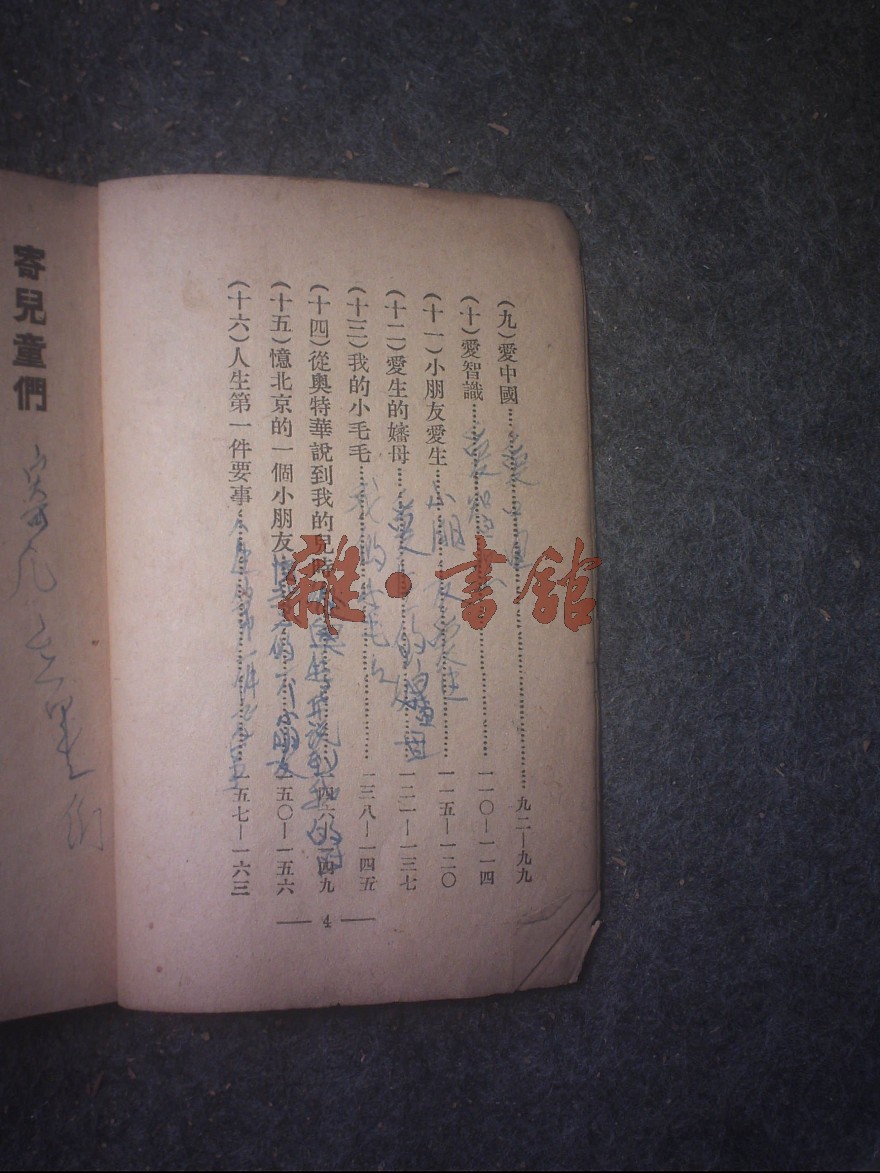 (九)愛中國……九二—九九
(十)愛智識……一一〇—一一四
(十一)小朋友愛生……一一五—一二〇
(十二)愛生的嬸母……一二一—一三七
(十三)我的小毛毛……一三八—一四五
(十四)從奥特華說到我的兒時……一四六—一四九
(十五)憶北京的一個小朋友……一五〇—一五六
(十六)人生第一件要事……一五七—一六三
— 4 —
寄兒童們
愛中國
愛智
小朋友愛生
的嬸母
我的小毛毛
說到我的
小朋友
雜·書館